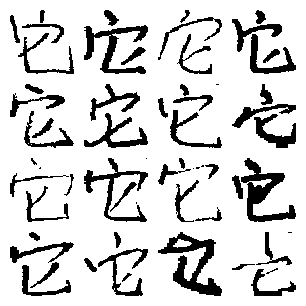 它它它它
它它它它
它它它它
它它它它